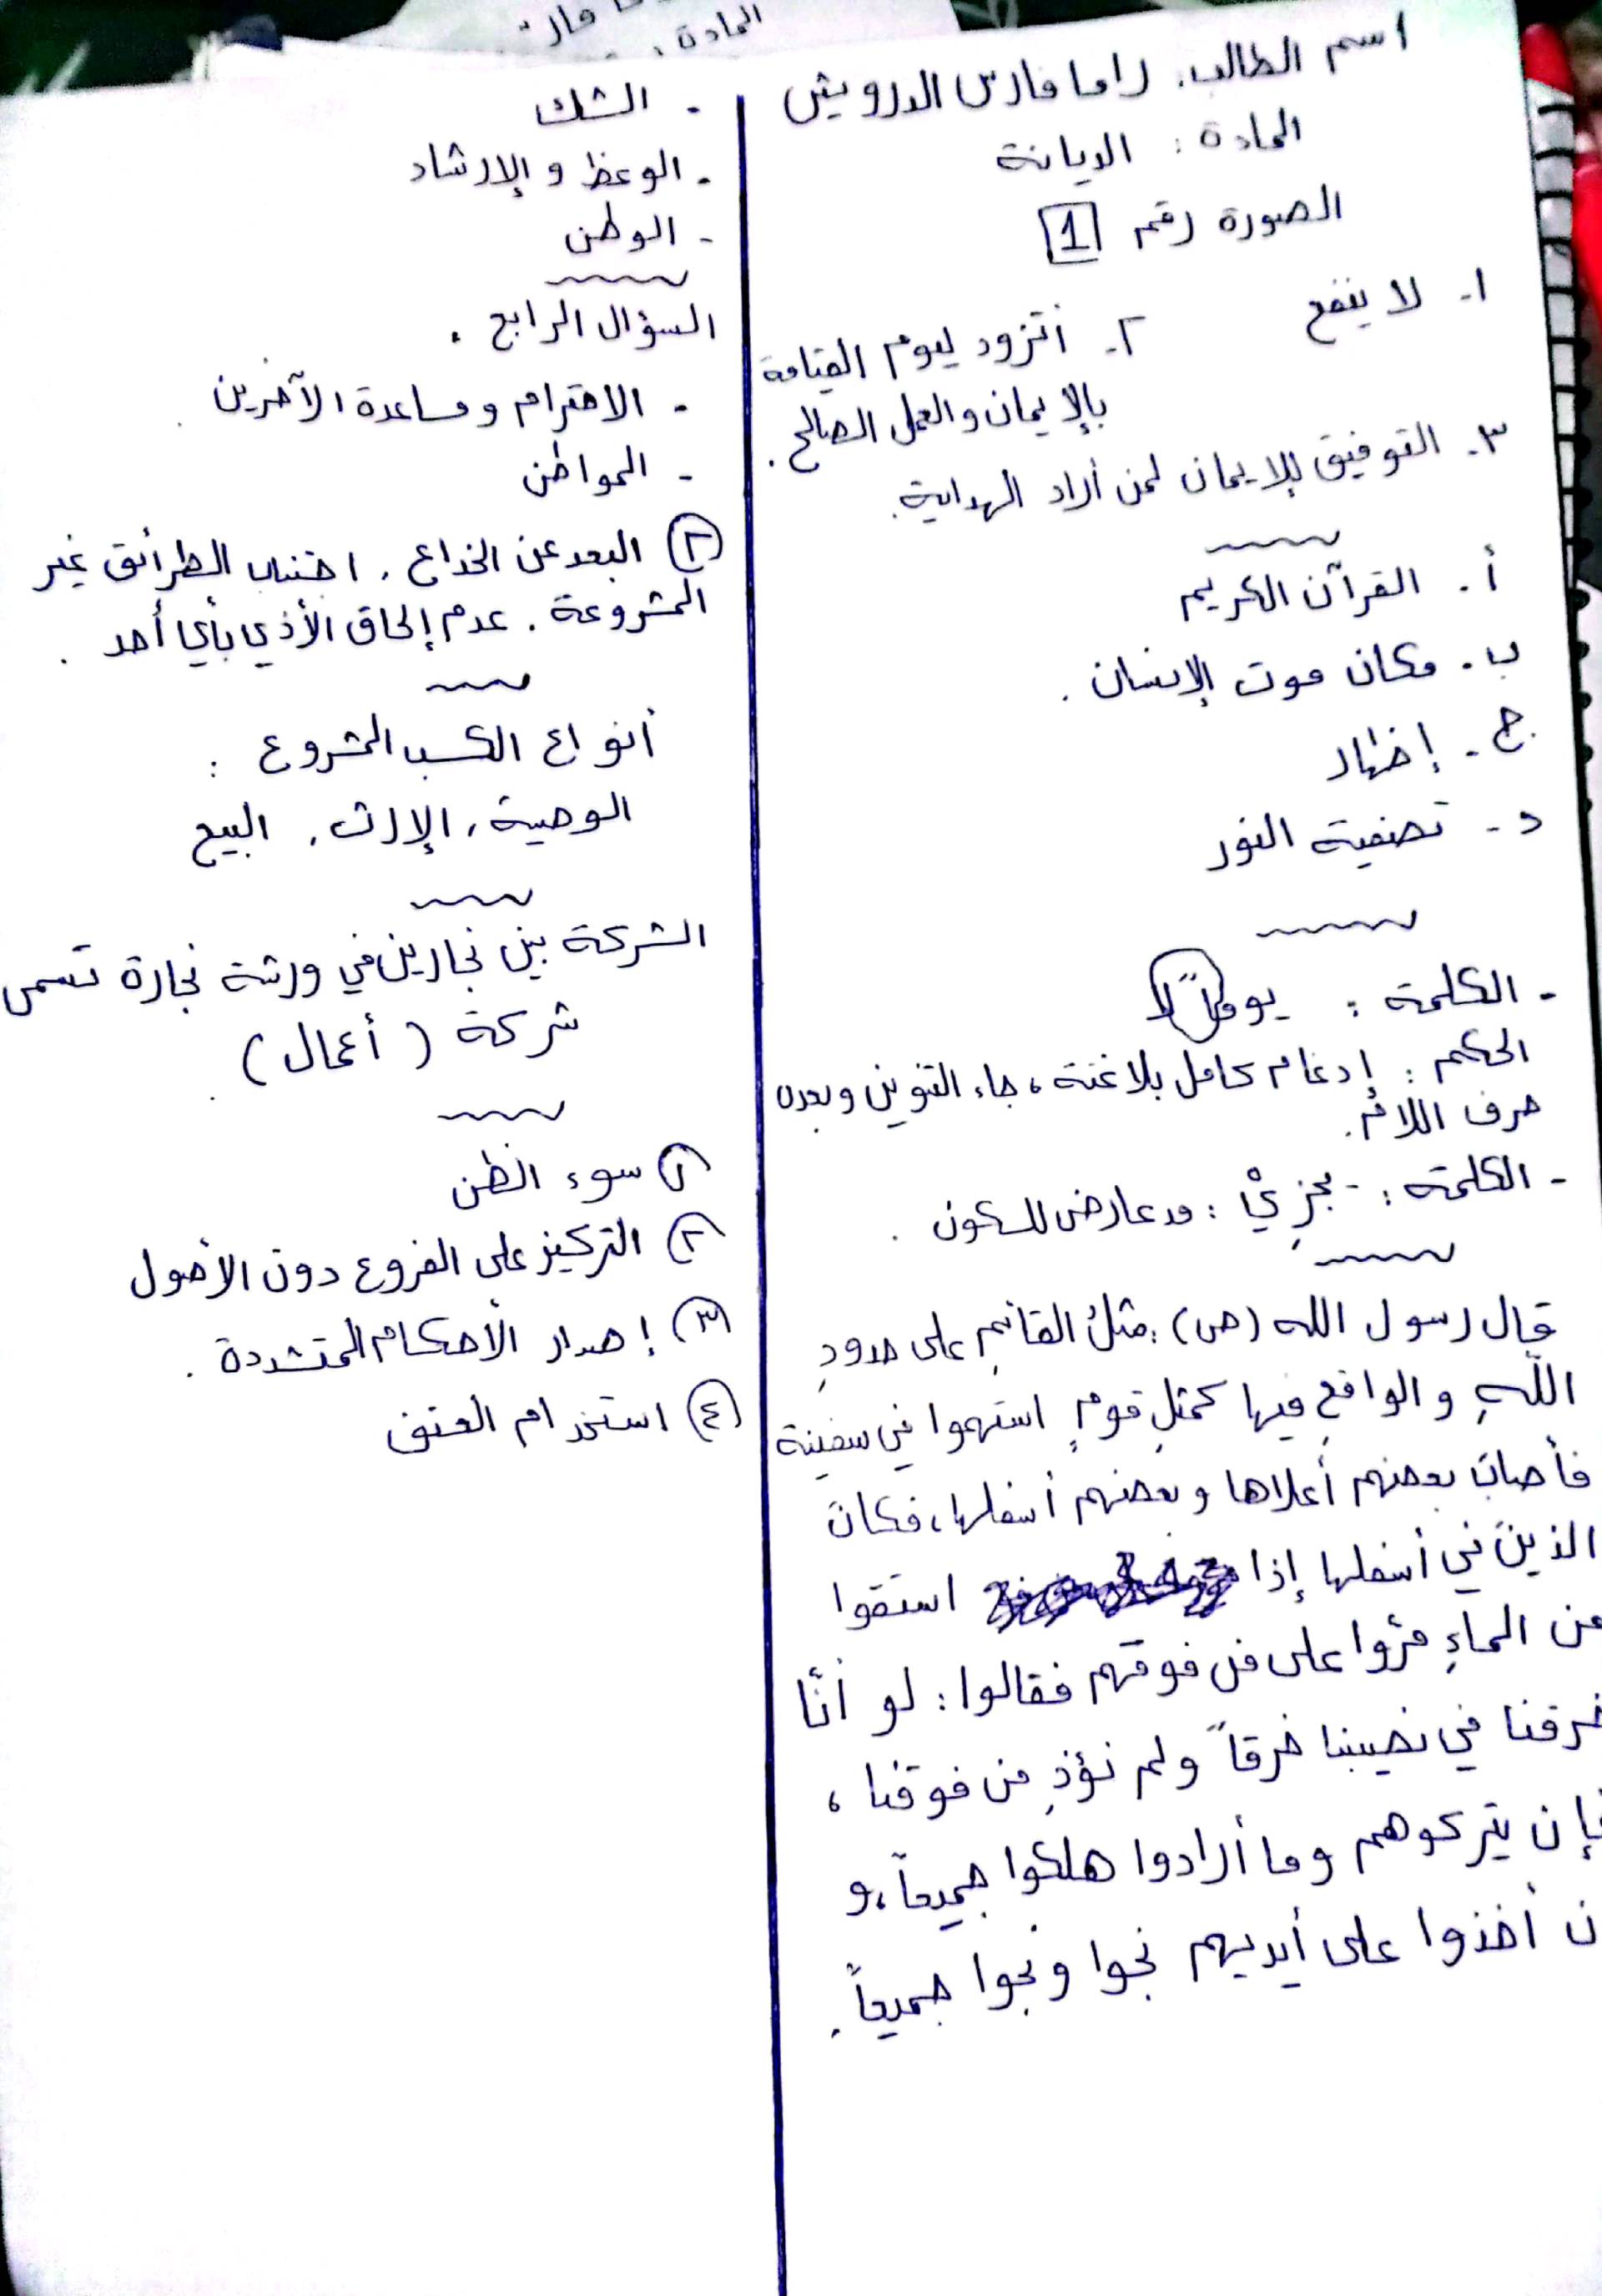 المادة :
اسم الطالب. راما فارس الدرويش
المادة : الديانة
الصورة رقم 1
١- لا ينفع
٢- أتزود ليوم القيامة
بالإيمان والعمل الصالح.
٣- التوفيق للإيمان لمن أراد الهداية.
أ. القرآن الكريم
ب. مكان موت الإنسان.
ج- إظهار
د- تصفية النور
- الكلمة : يوماً لا
الحكم : إدغام كامل بلا غنة، جاء التنوين وبعده
حرف اللام.
- الكلمة : - يجزيْ : مد عارض للسكون.
قال رسول الله (ص) : مثلُ القائمِ على حدودِ
اللّهِ والواقعِ فيها كمثلِ قومٍ استهموا في سفينة
فأصابَ بعضهم أعلاها وبعضهم أسفلها، فكانَ
الذينَ في أسفلها إذا استقوا
من الماءِ مرُّوا على من فوقَهم فقالوا : لو أنّا
خرقنا في نصيبنا خرقاً ولم نؤذِ من فوقنا،
فإن يتركوهم وما أرادوا هلكوا جميعاً، و
ن أخذوا على أيديهم نجوا ونجوا جميعاً.
- الشك
- الوعظ و الإرشاد
- الوطن
السؤال الرابع .
- الاحترام ومساعدة الآخرين.
- المواطن
٢ البعد عن الخداع , اجتناب الطرائق غير
المشروعة . عدم إلحاق الأذى بأي أحد .
أنواع الكسب المشروع :
الوصية , الإرث , البيع
الشركة بين نجارين في ورشة نجارة تسمى
شركة ( أعمال ) .
١ سوء الظن
٢ التركيز على الفروع دون الأصول
٣ إصدار الأحكام المتشددة .
٤ استخدام العنف